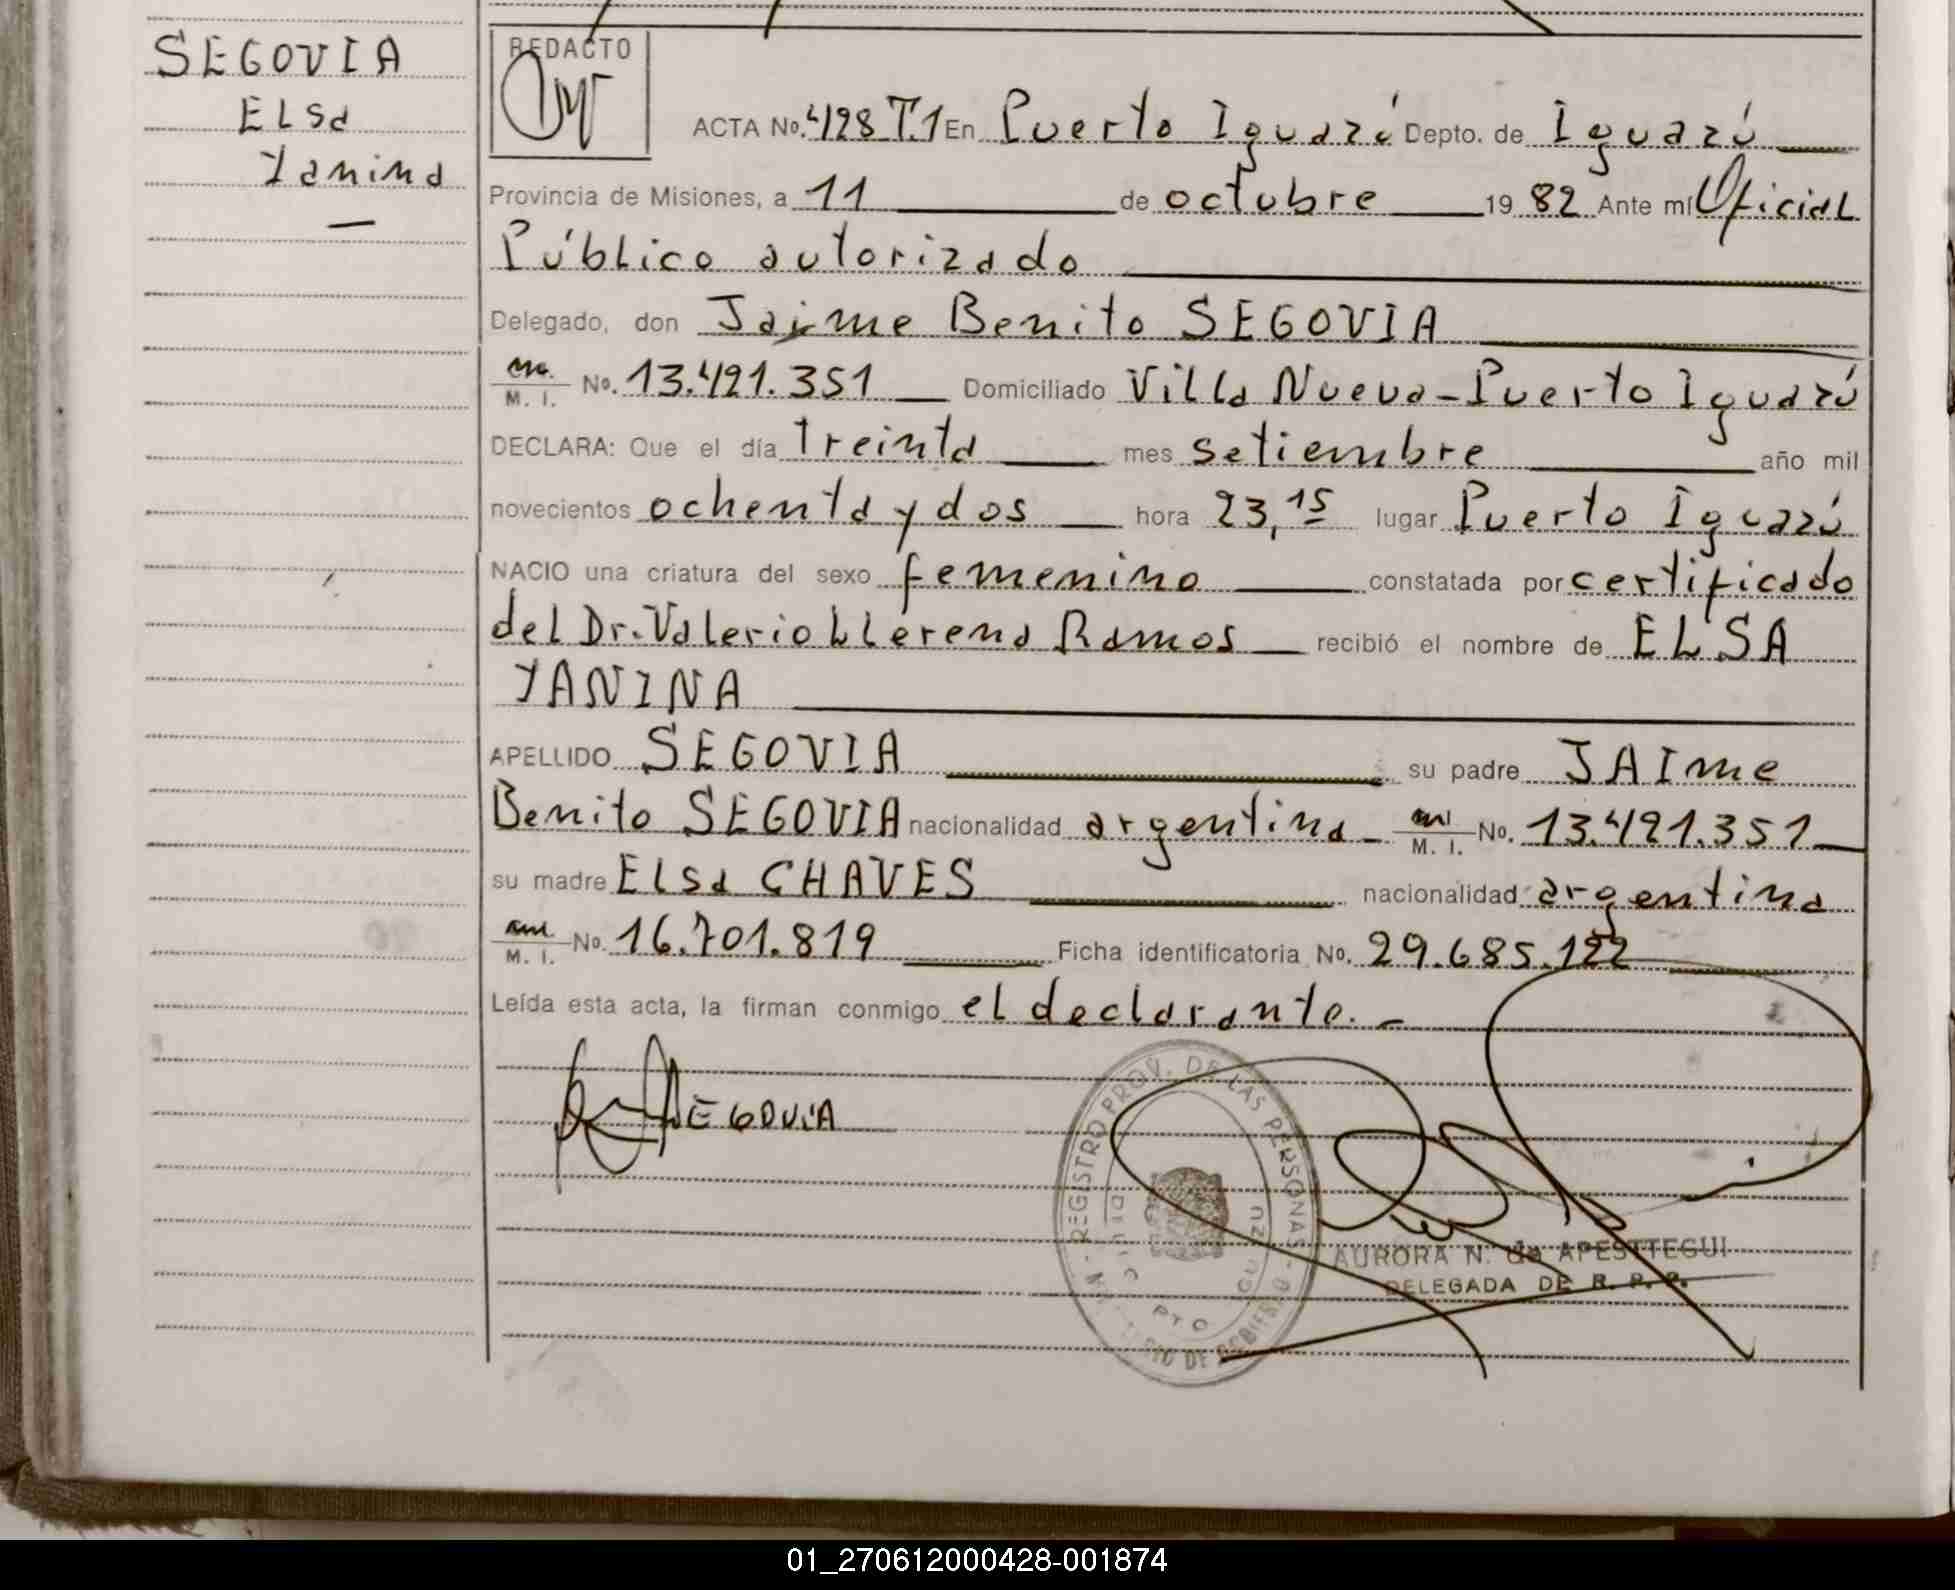 SEGOVIA
ELSa
Yanina
—
REDACTO
ACTA No. 428 T.1 En Puerto Iguazú Depto. de Iguazú
Provincia de Misiones, a 11 de octubre 19 82 Ante mí Oficial
Público autorizado
Delegado, don Jaime Benito SEGOVIA
M. I. No. 13.421.351 Domiciliado Villa Nueva - Puerto Iguazú
DECLARA: Que el día treinta mes setiembre año mil
novecientos ochenta y dos hora 23,15 lugar Puerto Iguazú
NACIO una criatura del sexo femenino constatada por certificado
del Dr. Valerio LLerena Ramos recibió el nombre de ELSA
YANINA
APELLIDO SEGOVIA su padre JAIme
Benito SEGOVIA nacionalidad argentina M. I. No. 13.421.351
su madre ELSa CHAVES nacionalidad argentina
M. I. No. 16.701.819 Ficha identificatoria No. 29.685.122
Leída esta acta, la firman conmigo el declarante. -
SEGOVIA
REGISTRO PROV. DE LAS PERSONAS
PTO
AURORA N. de APESTTEGUI
DELEGADA DE R. P. P.
01_270612000428-001874